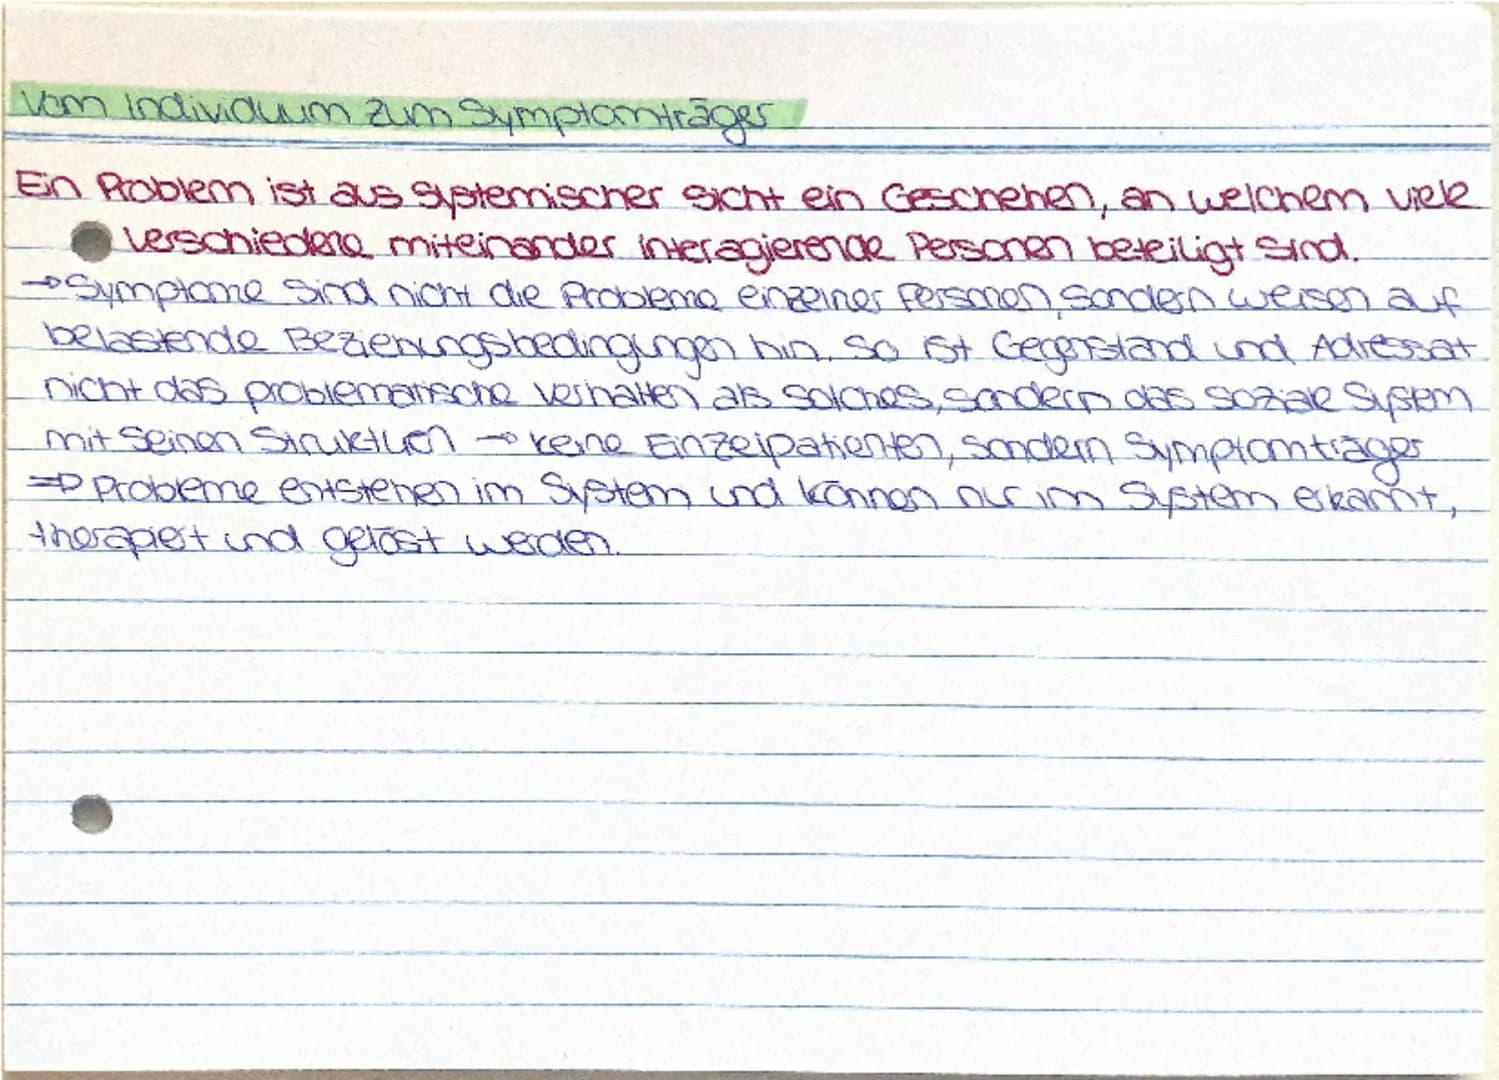 Vom Individuum zum Symptomträger
Ein Problem ist aus systemischer Sicht ein Geschehen, an welchem viele
verschiedene miteinander interagierende Personen beteiligt sind.
→ Symptome sind nicht die Probleme einzelner Personen, sondern weisen auf
belastende Beziehungsbedingungen hin. So ist Gegenstand und Adressat
nicht das problematische Verhalten als solches, sondern das soziale System
mit seinen Strukturen → keine Einzelpatienten, sondern Symptomträger
⇒ Probleme entstehen im System und können nur im System erkannt,
therapiert und gelöst werden.